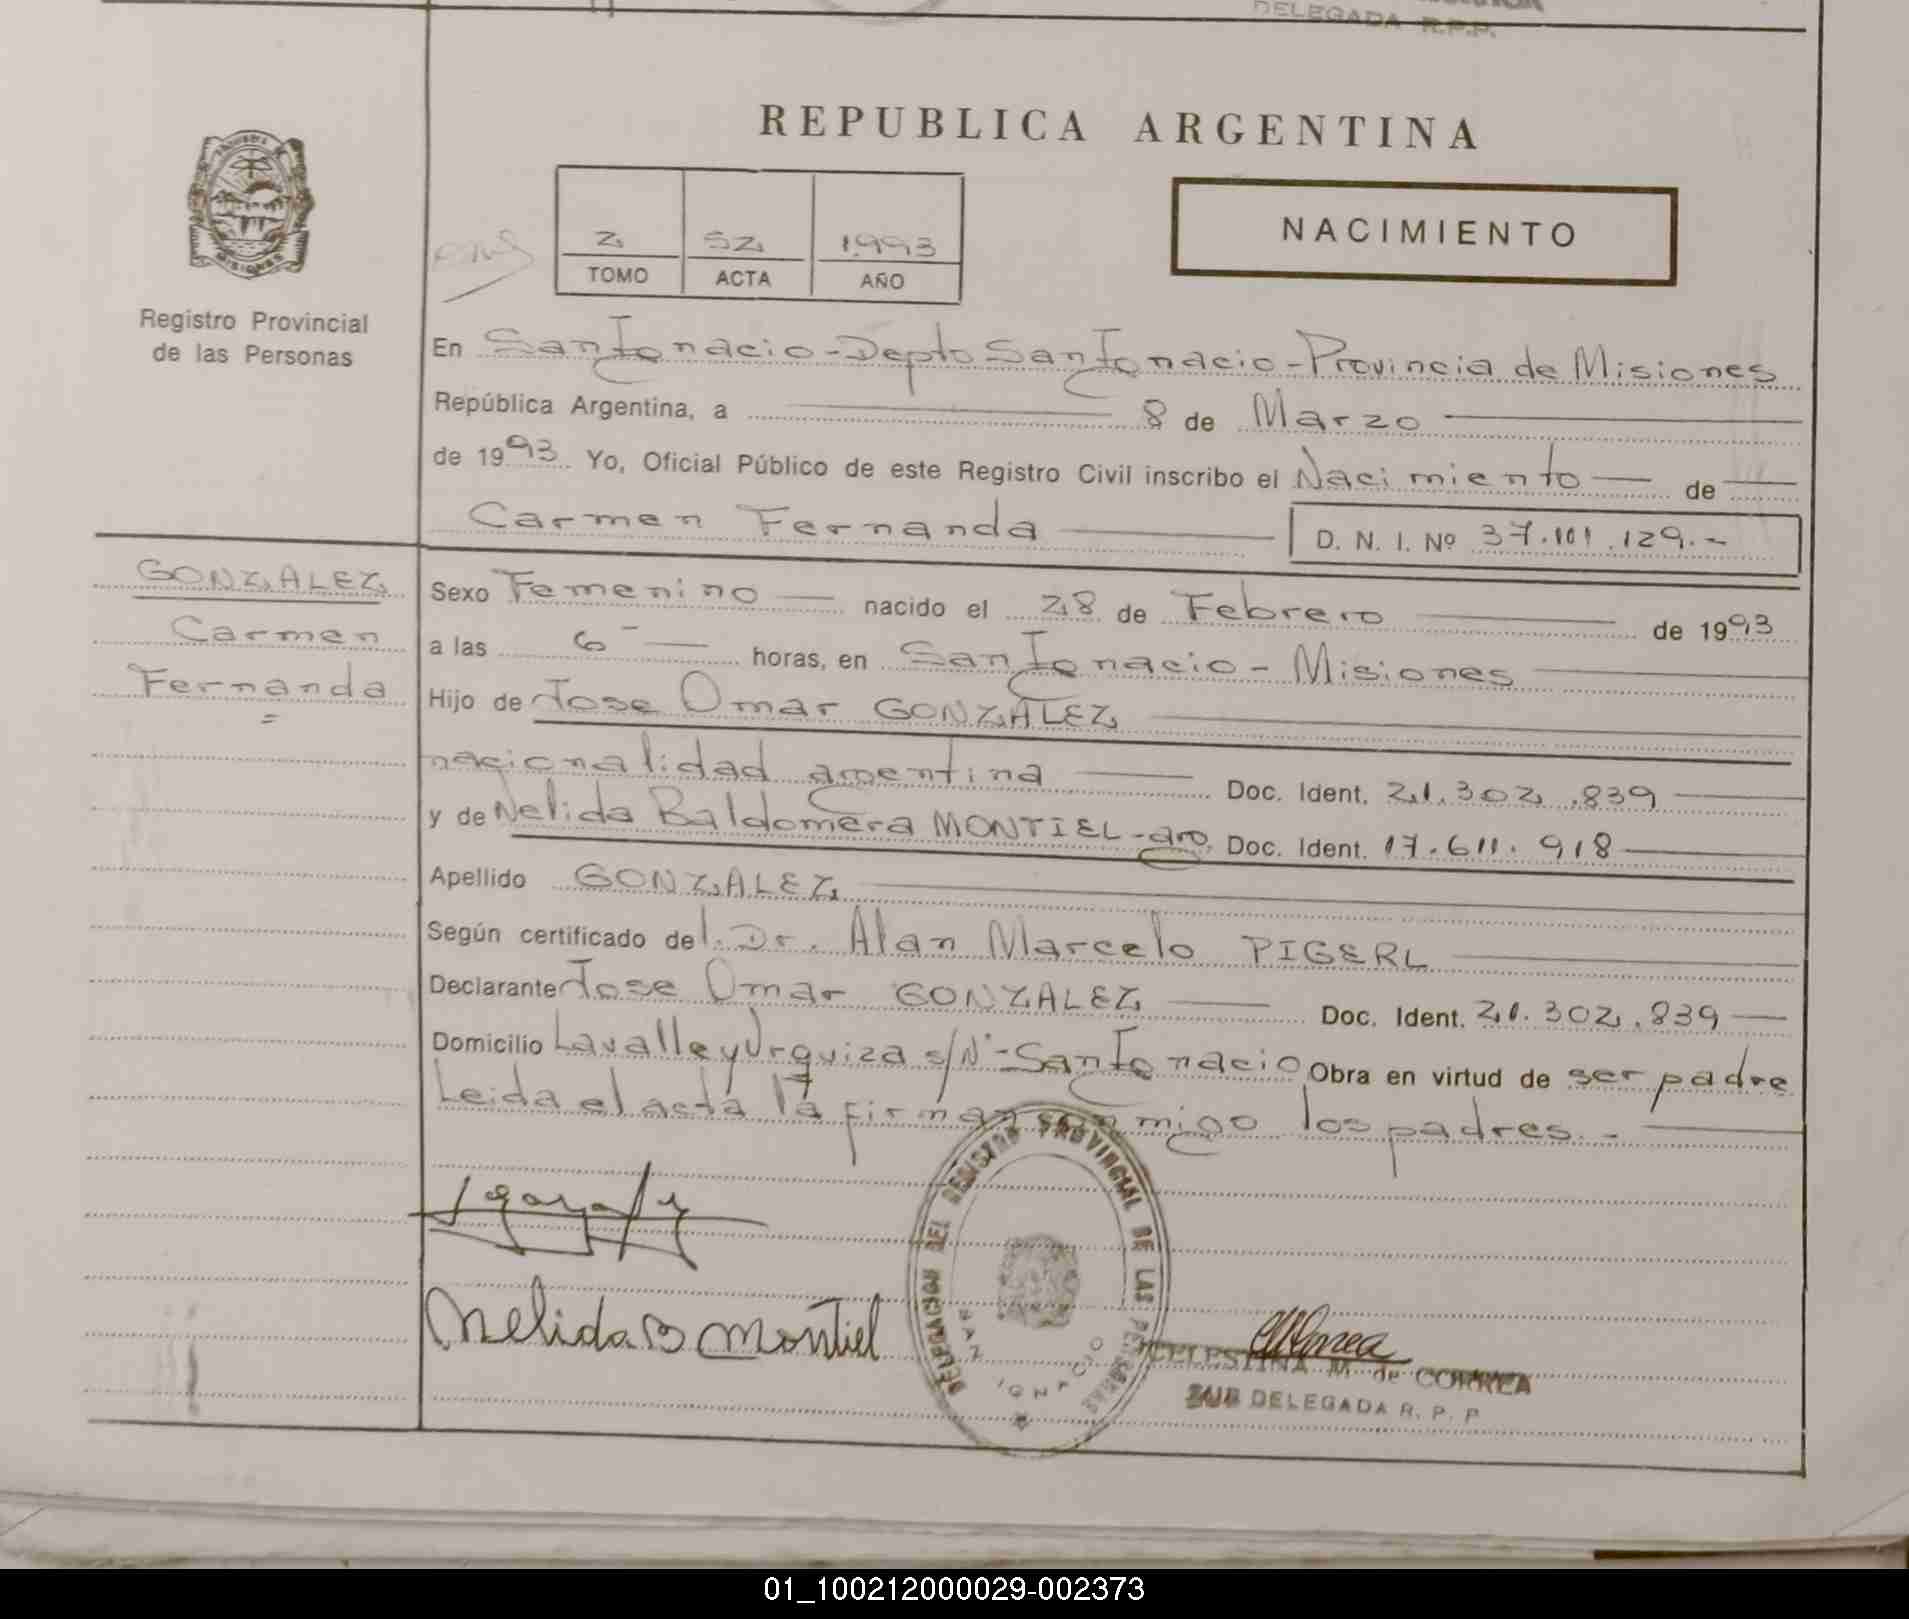 DELEGADA R.P.P.
REPUBLICA ARGENTINA
NACIMIENTO
2 52 1993
TOMO ACTA AÑO
MISIONES
Registro Provincial
de las Personas
En San Ignacio - Depto San Ignacio - Provincia de Misiones
República Argentina, a 8 de Marzo
de 1993. Yo, Oficial Público de este Registro Civil inscribo el Nacimiento de
Carmen Fernanda D. N. I. Nº 37.101.129.-
GONZALEZ
Carmen
Fernanda
=
Sexo Femenino nacido el 28 de Febrero de 1993
a las 6 horas, en San Ignacio - Misiones
Hijo de Jose Omar GONZALEZ
nacionalidad argentina Doc. Ident. 21.302.839
y de Nelida Baldomera MONTIEL - arg. Doc. Ident. 17.611.918
Apellido GONZALEZ
Según certificado del Dr. Alan Marcelo PIGERL
Declarante Jose Omar GONZALEZ Doc. Ident. 21.302.839
Domicilio Lavalle y Urquiza s/Nº - San Ignacio Obra en virtud de ser padre
Leida el acta la firman conmigo los padres.-
Nelida B Montiel
DELEGACION DEL REGISTRO PROVINCIAL DE LAS PERSONAS
SAN IGNACIO
CELESTINA M. de CORREA
SUB DELEGADA R. P. P
01_100212000029-002373